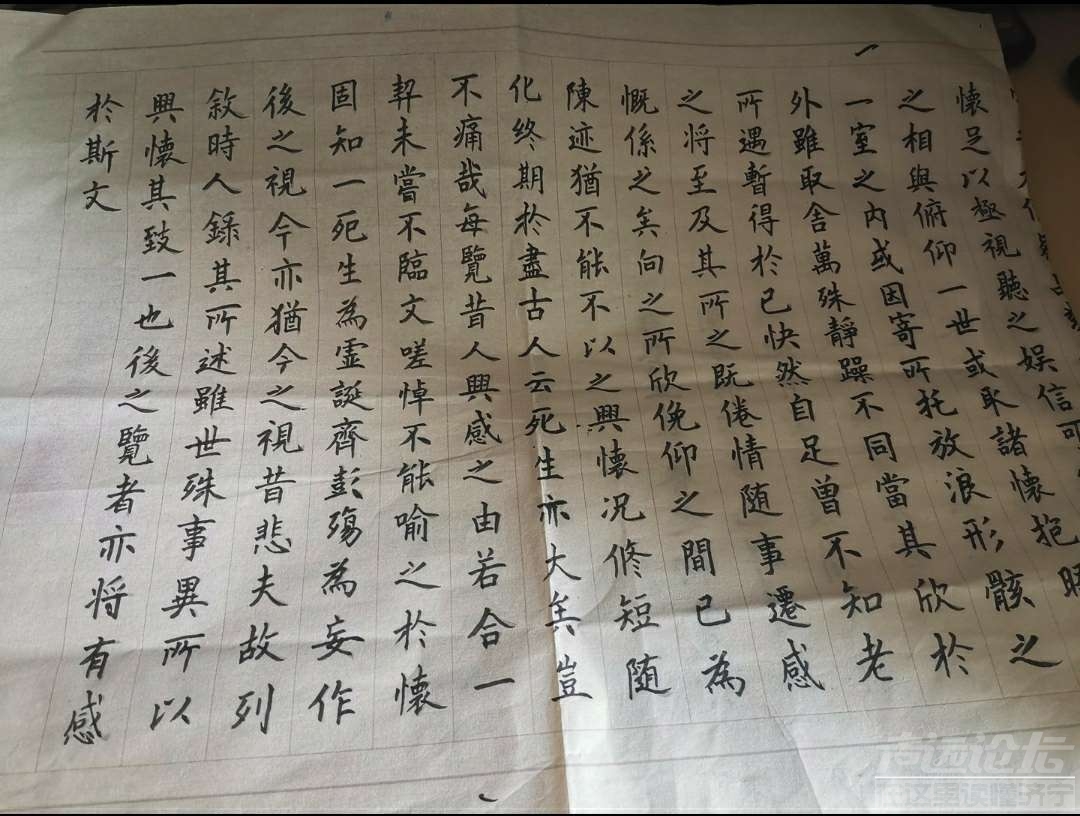 懷足以極視聽之娱信可
之相與俯仰一世或取諸懷抱晤
一室之內或因寄所托放浪形骸之
外雖取舍萬殊靜躁不同當其欣於
所遇暫得於己快然自足曾不知老
之将至及其所之既倦情随事遷感
慨係之矣向之所欣俛仰之間已為
陳迹猶不能不以之興懷况修短随
化終期於盡古人云死生亦大矣豈
不痛哉每覽昔人興感之由若合一
契未嘗不臨文嗟悼不能喻之於懷
固知一死生為虛誕齊彭殤為妄作
後之視今亦猶今之視昔悲夫故列
敘時人錄其所述雖世殊事異所以
興懷其致一也後之覽者亦将有感
於斯文